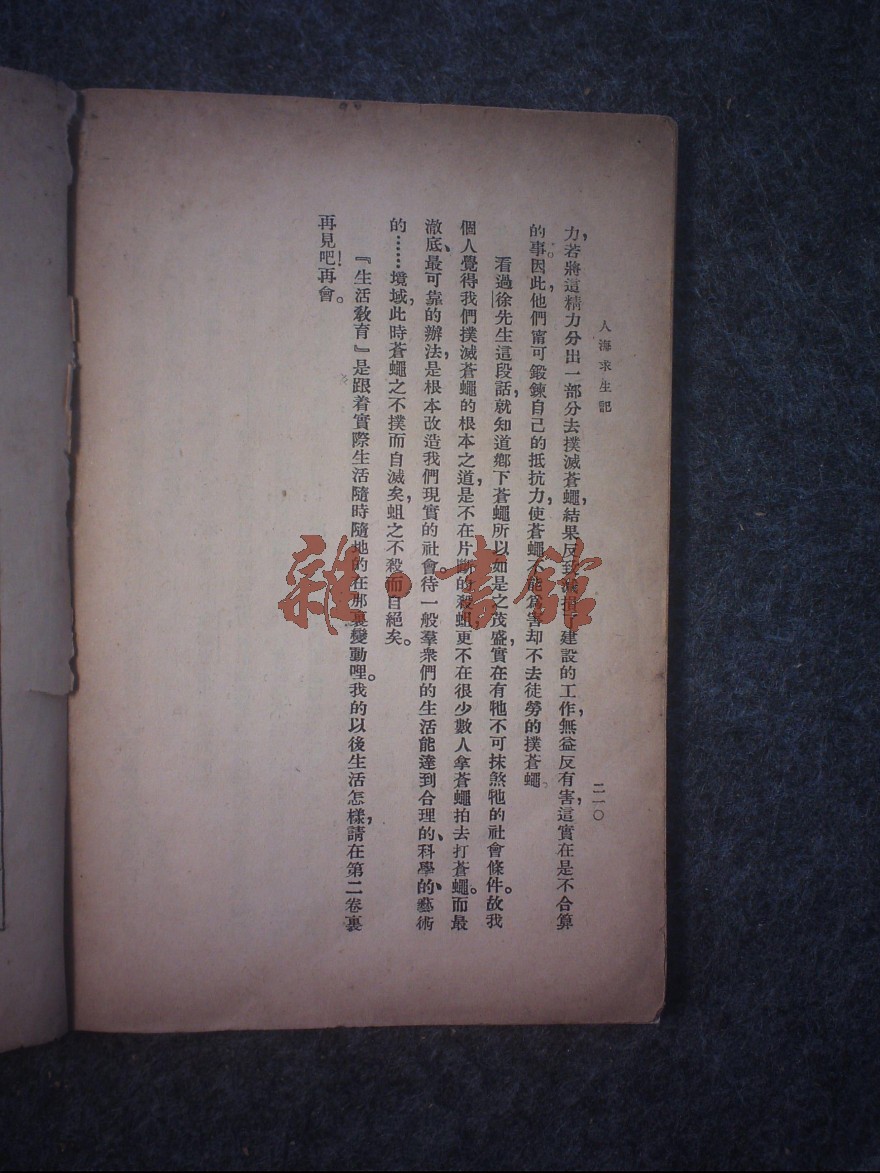 人海求生記
二一〇
力，若將這精力分出一部分去撲滅蒼蠅，結果反致減損了建設的工作，無益反有害，這實在是不合算
的事。因此，他們甯可鍛鍊自己的抵抗力，使蒼蠅不能爲害，却不去徒勞的撲蒼蠅。
看過徐先生這段話，就知道鄉下蒼蠅所以如是之茂盛，實在有牠不可抹煞牠的社會條件。故我
個人覺得我們撲滅蒼蠅的根本之道，是不在片斷的殺蛆，更不在很少數人拿蒼蠅拍去打蒼蠅。而最
澈底、最可靠的辦法，是根本改造我們現實的社會。待一般羣衆們的生活能達到合理的、科學的、藝術
的……境域，此時蒼蠅之不撲而自滅矣，蛆之不殺而自絕矣。
『生活敎育』是跟着實際生活隨時隨地的在那裏變動哩。我的以後生活怎樣，請在第二卷裏
再見吧！再會。
雜·書館